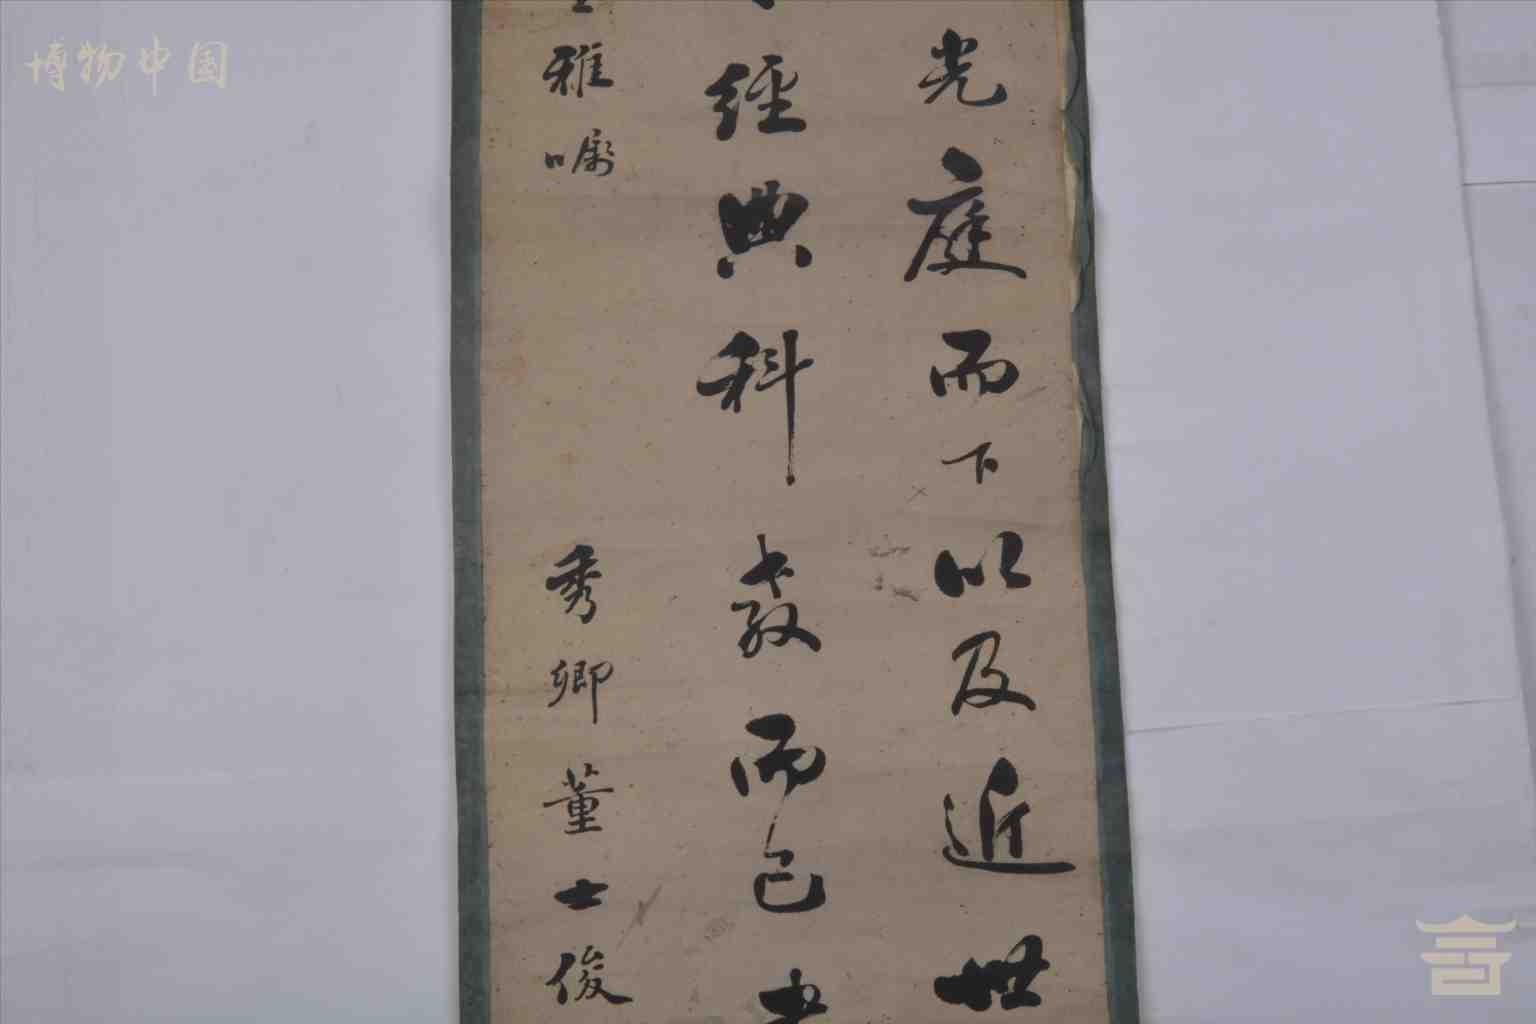 博物中国
光庭而下以及近世
經典科教而已
雅嘱
秀卿董士俊